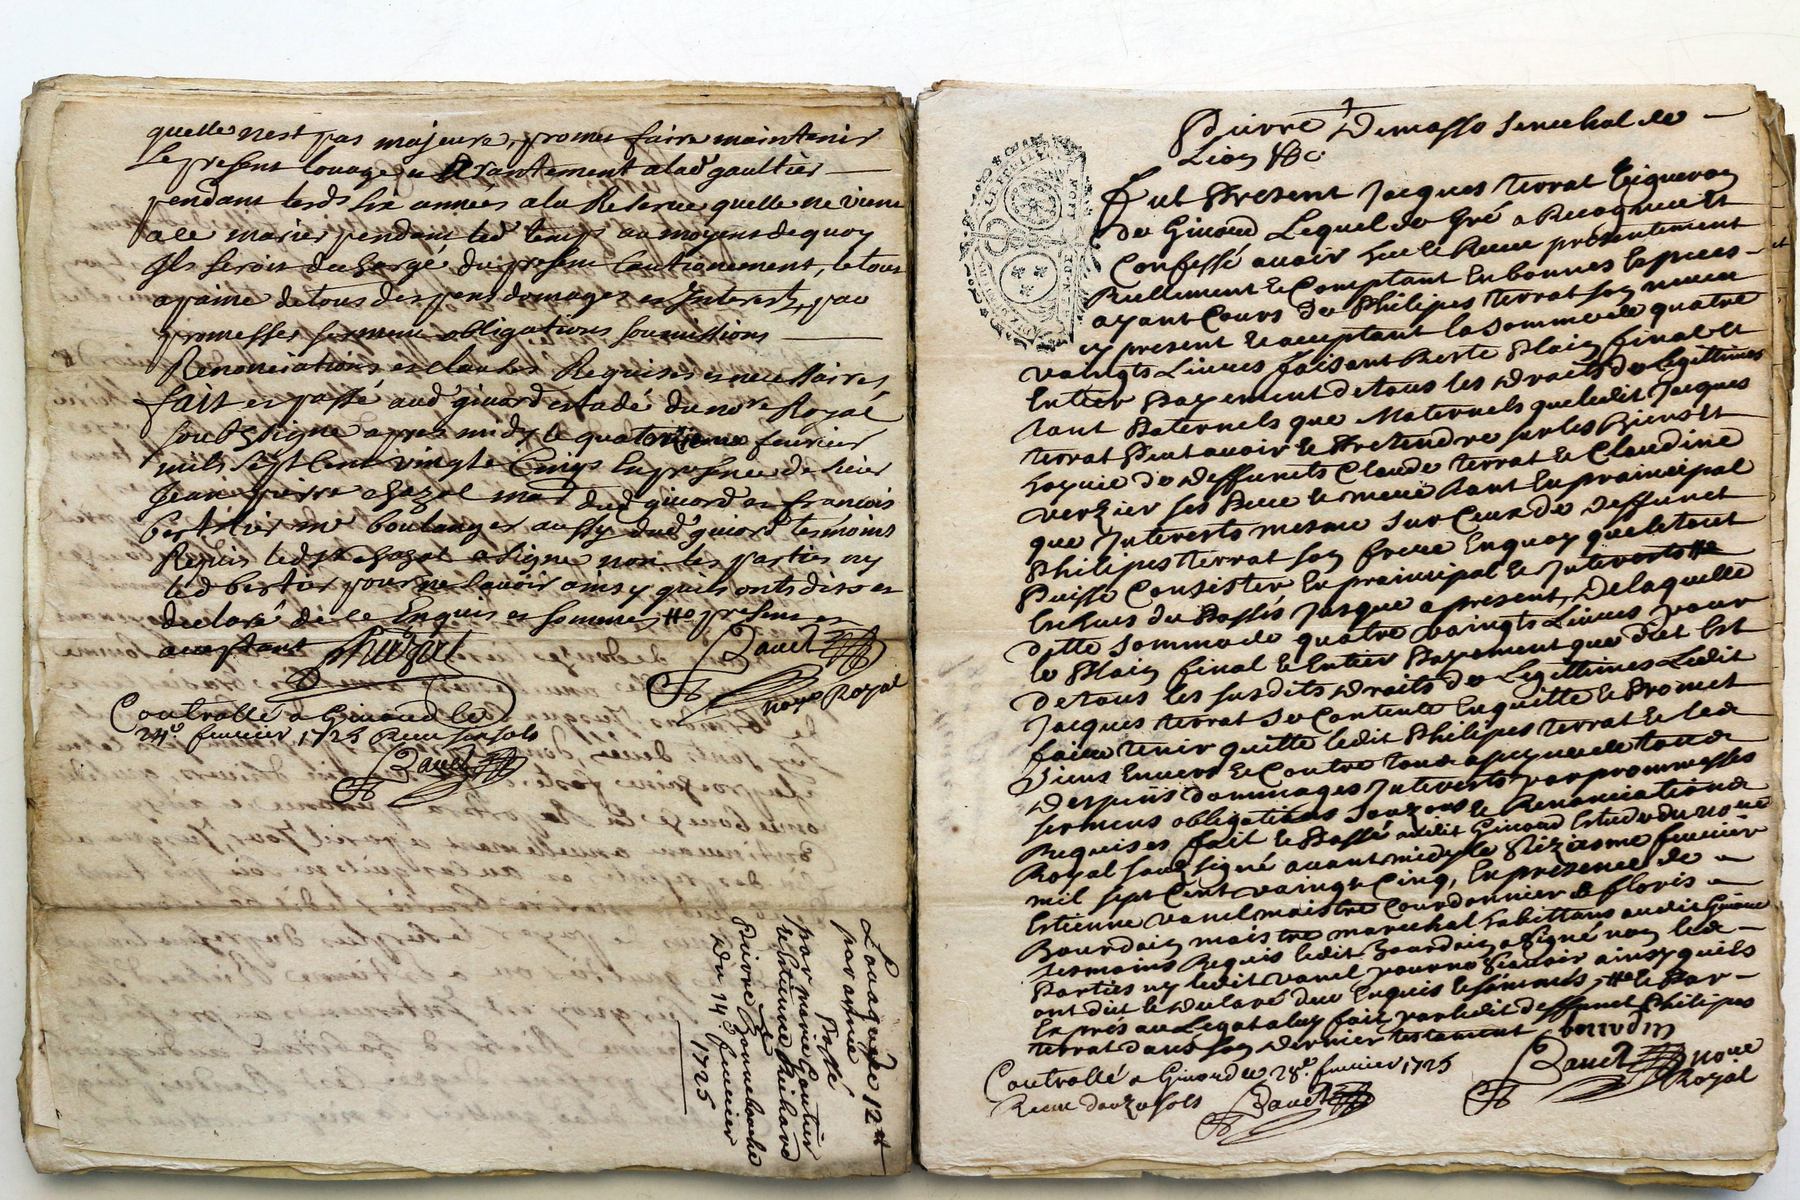 quelle nest pas majeure, promet faire maintenir
Le present louage et a lad gaultier
pendant lesds six années a la Reserue quelle ne vienne
a se marier pendant led temps au moyens de quoy
Ils seroit dechargé du present Cautionement, le tous
a paine de tous despens domages et Interests, par
promesses serment obligations soumissions
Renonciations et clauses Requises et necessaires
fait et passé aud giuord estude du nore Royal
soubsigne apres midy le quatorzieme feurier
mils sept cent vingte Cinqs En presence de sieur
Jean pierre chazal mard dud giuord et francois
bertier me boulanger aussy dud giuord temoins
Requis led sr chazal a signe non les parties ny
led bertier pour ne scauoir ainsy quils onts dits et
declaré de ce Enquis et sommes ## present et
aceptant Chazal Bauet
nore Royal
Controllé a Giuord le
24e. feurier 1725 Receu six sols
Bauet
Louage de 12 ##
par année
Passé
par marie Gautier
a Estienne Guichard
Pierre Bonnebouche
Du 14e feurier
1725
Pierre Demasso Senechal de
Lion &c
LYON
Fut Present Jacques terrat Vigneron
de Giuord Lequel de Gré a Recogneu Et
Confessé auoir Eu et Receu presentement
Reellement Et Comptant En bonnes Especes
ayant Cours de Philipes terrat son neueu
cy present Et acceptant la somme de quatre
vaingts Liures faisant Reste Plain final Et
Entier Payement de tous les Droits de Legitimes
tant Paternels que Maternels que ledit Jacques
terrat Peut auoir Et Pretendre sur les Biens Et
hoyrie de deffunts Claude terrat Et Claudine
verzier ses Pere Et mere tant En prainsipal
que Interests mesme sur Ceux de deffunct
Philipes terrat son frere En quoy que le tout
Puisse Consister En prainsipal Et Interests ##
Escheus du Passés Jusque a present, De laquelle
ditte somme de quatre vaingts Liures pour
le Plain final Et Entier Payement que dit Est
De tous les susdits Droits de Legitimes Ledit
Jacques terrat se Contente En quitte Et Promet
faire tenir quitte ledit Philipes terrat Et les
siens Enuers Et Contre tous a payne de tous
Despens dommages Interests par prommesses
sermens obligations Et Renonciations
Requises fait Et Passé audit Giuord Estude du nore
Royal soubsigné auant midy le seizieme feurier
mil sept Cent vaingt Cinq, En presence de
Estienne vanel maistre Courdonnier Et floris
Bourdain maistre marechal habittans audit Giuord
tesmoins Requis ledit Bourdain a signé non les
Parties ny ledit vanel pour ne scauoir ainsy quils
ont dit Et Declaré de ce Enquis Et sommés, ## Et Par
Expres au Legat a luy fait par ledit deffunct Philipes
terrat dans son Dernier testament bourdin
Bauet nore
Royal
Controllé a Giuord le 28e. feurier 1725
Receu douze sols Bauet